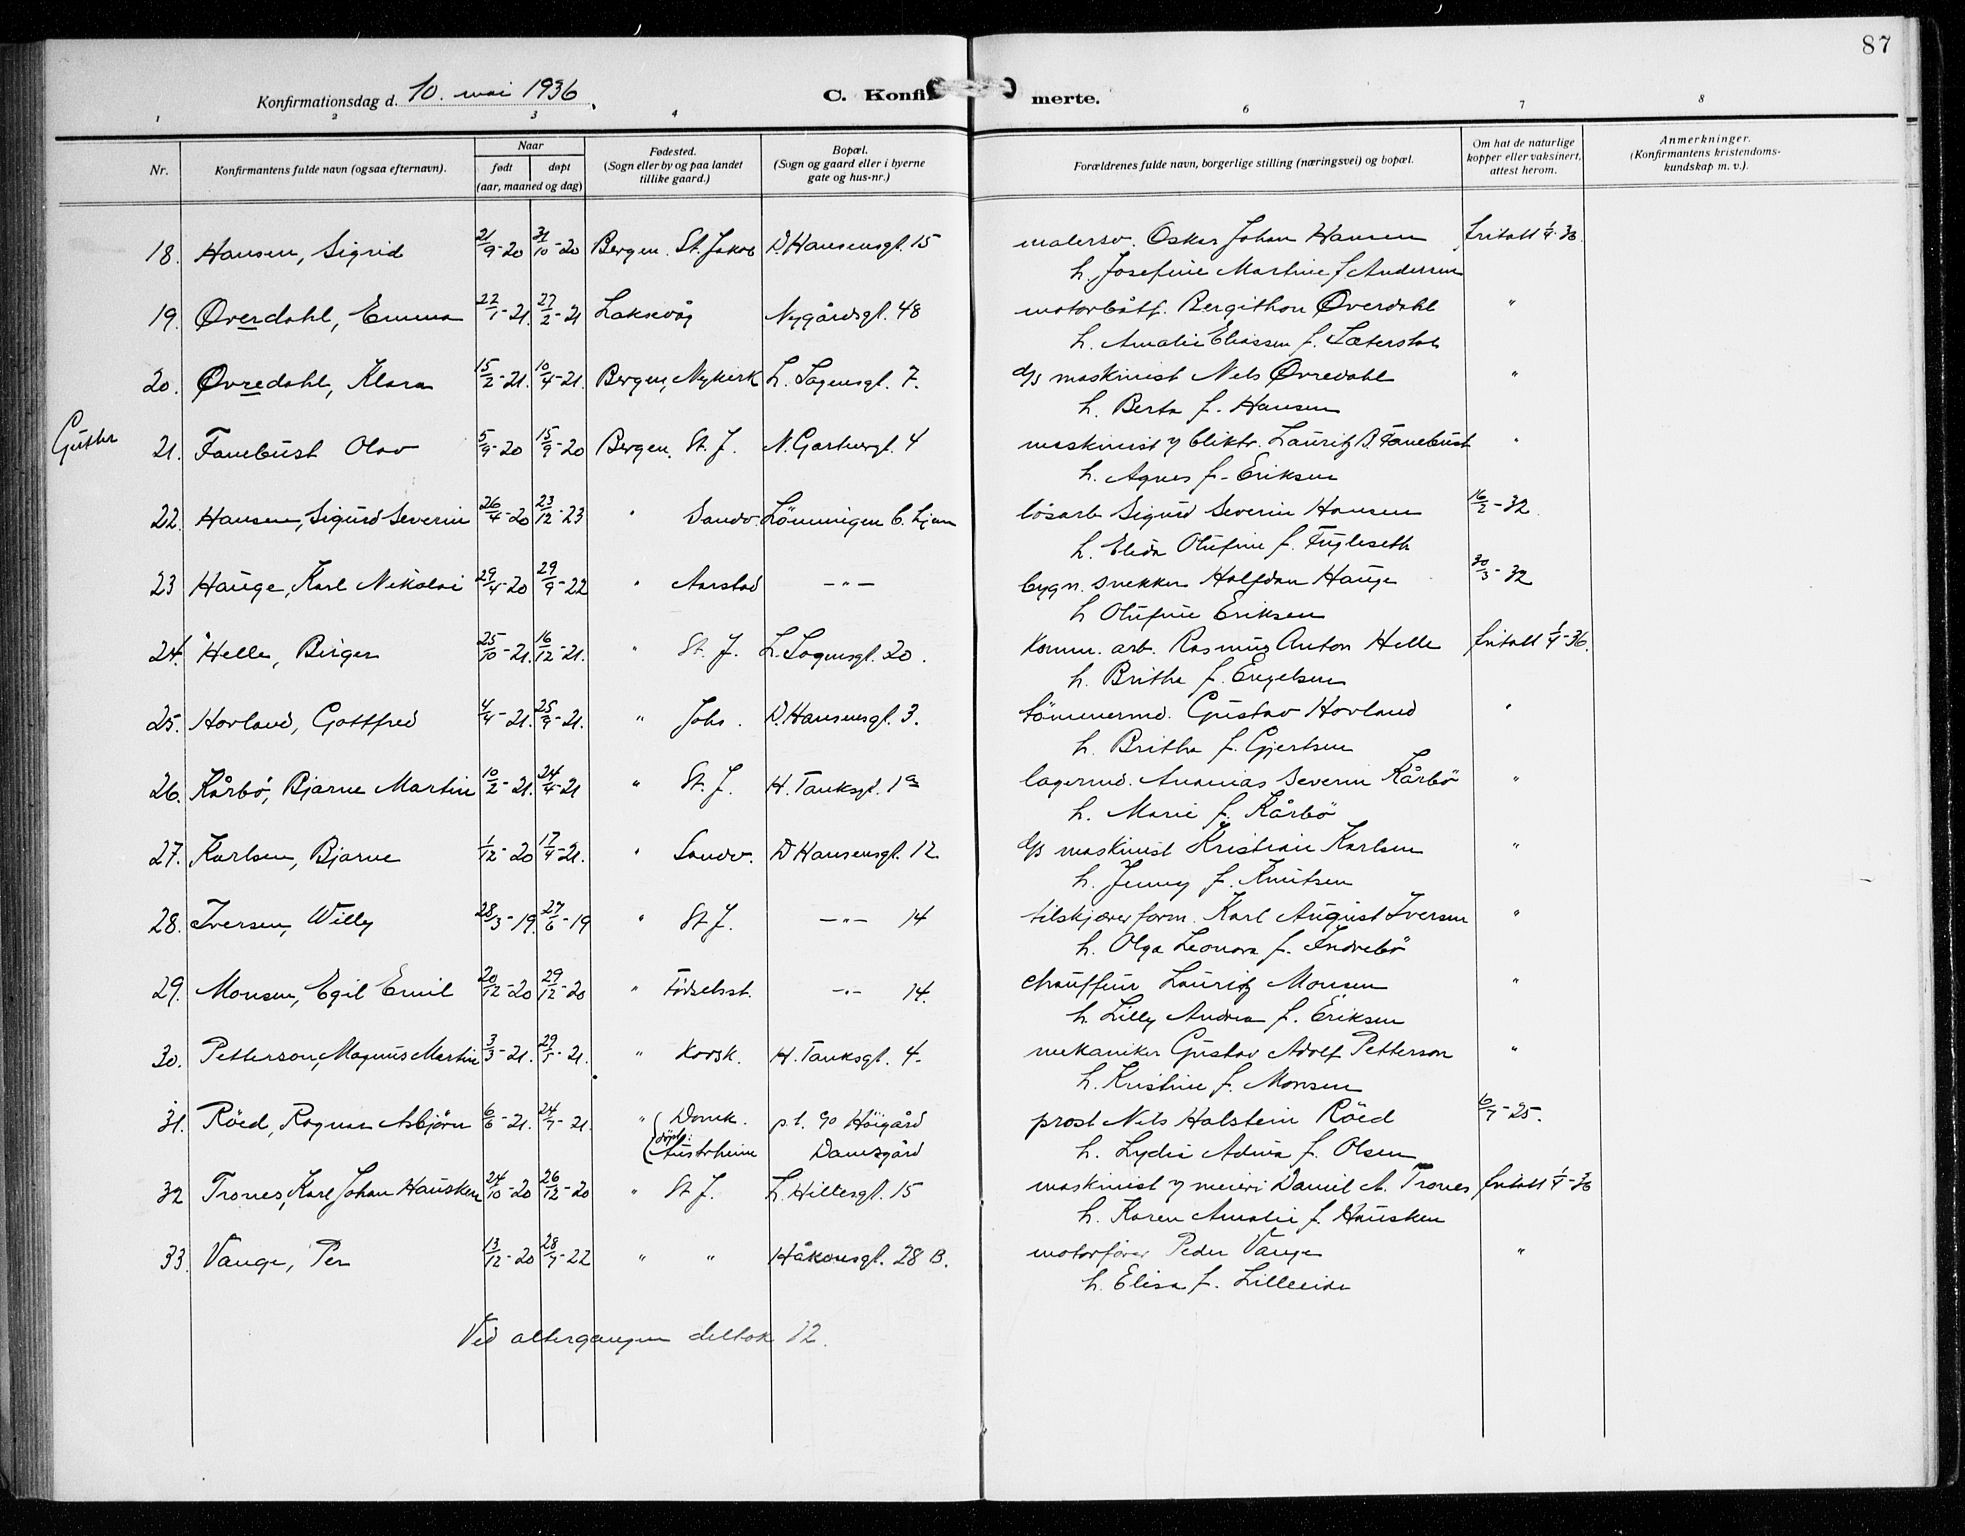 87
Konfirmationsdag d. 10. mai 1936.
C. Konfirmerte.
1 2 3 4 6 7 8
Nr. Konfirmantens fulde navn (ogsaa efternavn). Naar født døpt (aar, maaned og dag) Fødested. (Sogn eller by og paa landet tillike gaard.) Bopæl. (Sogn og gaard eller i byerne gate og hus-nr.) Forældrenes fulde navn, borgerlige stilling (næringsvei) og bopæl. Om hat de naturlige kopper eller vaksinert, attest herom. Anmerkninger. (Konfirmantens kristendomskundskap m. v.).
18. Hansen, Sigrid 21/9-20 31/10-20 Bergen. St. Jakob D. Hansensgt. 15 malersv. Oskar Johan Hansen fritatt 1/4-36.
h. Josefine Martine f. Andersen
19. Øverdahl, Emma 22/1-21. 27/2-21 Laksevåg Nygårdsgt. 48 motorbåtf. Bergithon Øverdahl "
h. Amalie Eliassen f. Sæterstøl
20. Øvredahl, Klara 15/2-21. 10/4-21. Bergen, Nykirk L. Sagensgt. 7. d/s maskinist Nels Øvredahl "
h. Berta f. Hansen
Gutter
21. Fanebust Olav 5/9-20 15/9-20 Bergen. St. J. N. Garbergt. 4 maskinist v/ bliktr. Lauritz B. Fanebust "
h. Agnes f. Eriksen
22. Hansen, Sigurd Severin 26/4-20 23/12-23 " Sandv. Lønningen b. hjem løsarb Sigurd Severin Hansen 16/2-32.
h. Elida Olufine f. Fugleseth
23 Hauge, Karl Nikolai 29/4-20 29/9-22 " Aarstad -"- bygn. snekker Halfdan Hauge 30/3-32
h Olufine Eriksen
24. Helle, Birger 25/10-21. 16/12-21. " St. J. L. Sagensgt. 20. komm. arb. Rasmus Anton Helle fritatt 1/4-36.
h. Britha f. Engelsen
25. Hovland, Gottfred 4/4-21. 25/9-21. " Johs. D. Hansensgt. 3. tömmermd. Gustav Hovland "
h. Britha f. Gjertsen
26. Kårbö, Bjarne Martin 10/2-21. 24/4-21 " St. J. H. Tanksgt. 1a lagermd. Ananias Severin Kårbö "
h. Marie f. Kårbö
27. Karlsen, Bjarne 1/12-20 17/4-21. " Sandv. D Hansensgt. 12 d/s maskinist Kristian Karlsen "
h. Jenny f. Knutsen
28. Iversen, Willy 28/3-19. 27/6-19 " St J. -"- 14 tilskjærer form. Karl August Iversen "
h. Olga Leonora f. Indrebö
29. Monsen, Egil Emil 20/12-20 29/12-20 " Födselsst. -"- 14. chauffeur Lauritz Monsen "
h. Lilly Andrea f. Eriksen
30. Petterson, Magnus Martin 3/3-21. 29/5-21. " Korsk. H. Tanksgt. 4. mekaniker Gustav Adolf Petterson "
h. Kristine f. Monsen
31. Röed, Ragnar Asbjörn 6/6-21. 24/7-21. " Domk. p.t. c/o Höigård prost Nils Halstein Röed 6/7-25.
döpt: Austrheim Damsgård h. Lydia Advia f. Olsen
32 Trones, Karl Johan Hausken 24/10-20 26/12-20 " St J. L. Hillesgt. 15 maskinist v/ meieri Daniel A. Trones fritatt 1/4-36
h. Karen Amalie f. Hausken
33. Vange, Per 13/12-20 28/7-22 " " Håkonsgt. 28 B. motorfører Peder Vange "
h. Elisa f. Lilleeide
Ved altergangen deltok 12.